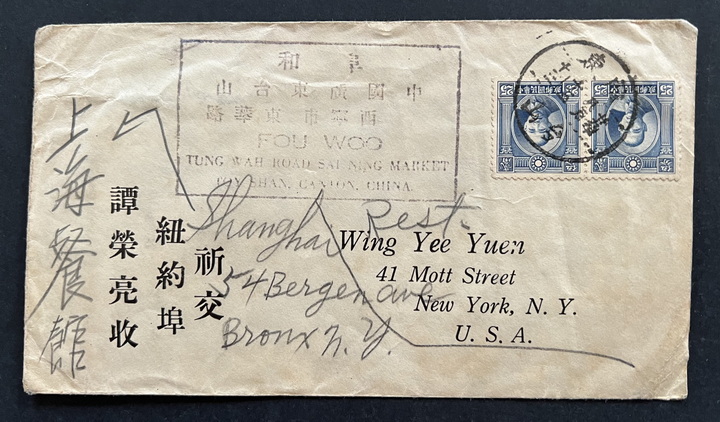 阜 和
中國廣東台山
西寧市東華路
FOU WOO
TUNG WAH ROAD SAI NING MARKET
TOY SHAN, CANTON, CHINA.
25
25
祈交
紐約埠
譚榮亮收
Wing Yee Yuen
41 Mott Street
New York, N. Y.
U. S. A.
上海餐館
Shanghai Rest.
54 Bergen ave
Bronx N.Y.